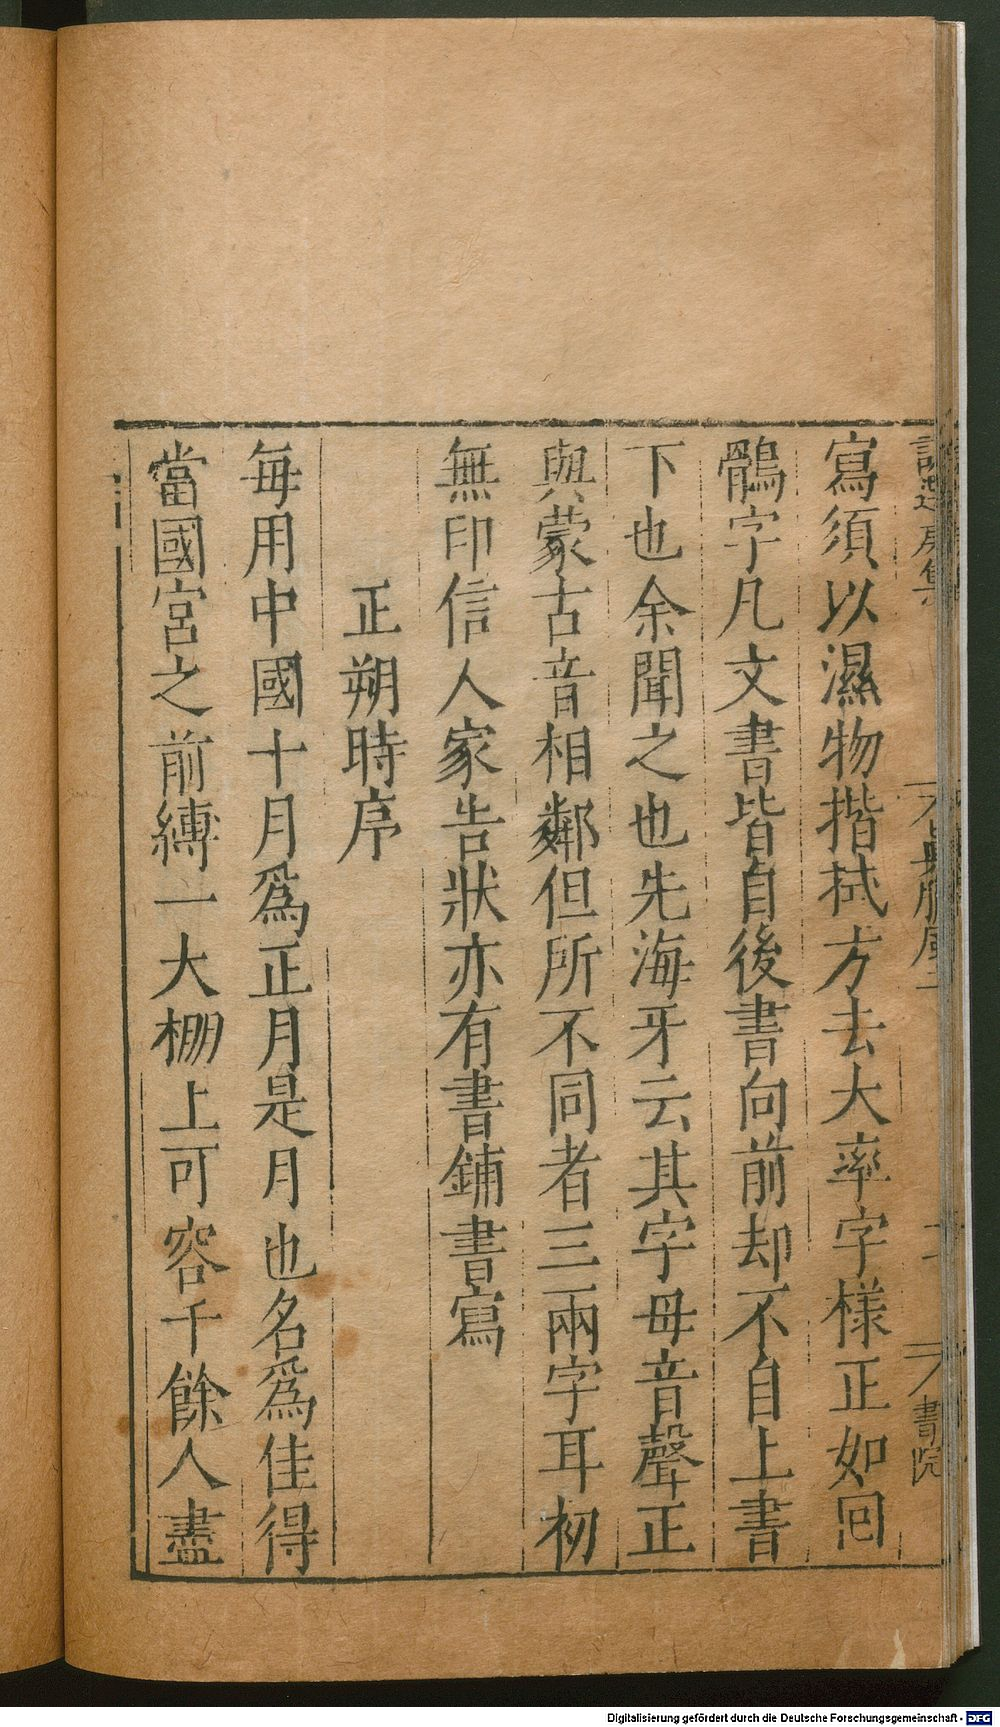 寫須以濕物揩拭方去大率字樣正如囘
鶻字凡文書皆自後書向前却不自上書
下也余聞之也先海牙云其字母音聲正
與蒙古音相鄰但所不同者三兩字耳初
無印信人家告狀亦有書鋪書寫
正朔時序
每用中國十月爲正月是月也名爲佳得
當國宮之前縛一大棚上可容千餘人盡
書院
Digitalisierung gefördert durch die Deutsche Forschungsgemeinschaft - DFG